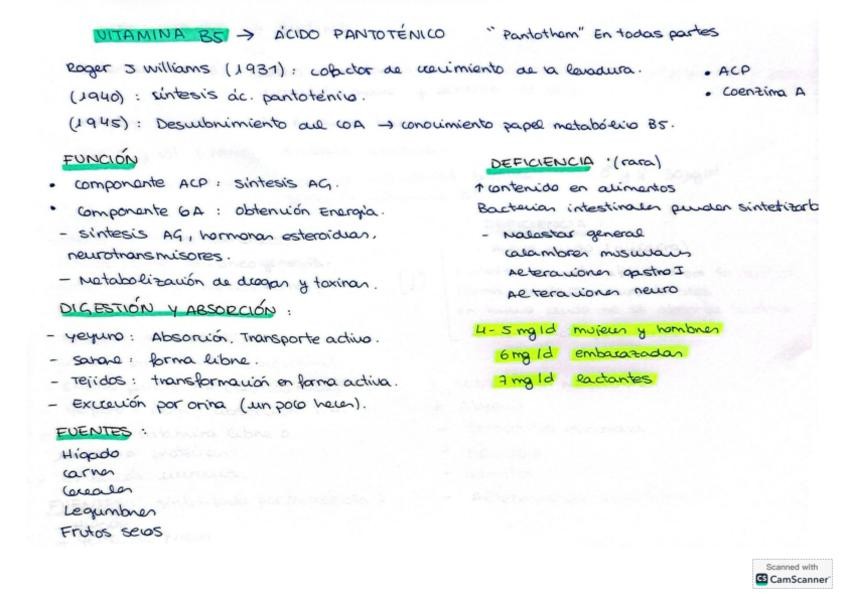 VITAMINA B5 → ÁCIDO PANTOTÉNICO "Pantothem" En todas partes
Roger J Williams (1931): cofactor de crecimiento de la levadura.
(1940): síntesis ác. pantoténico.
(1945): Descubrimiento del COA → conocimiento papel metabólico B5.
• ACP
• Coenzima A
FUNCIÓN
• Componente ACP: síntesis AG.
• Componente COA: obtención Energía.
- síntesis AG, hormonas esteroideas,
neurotransmisores.
- Metabolización de drogas y toxinas.
DIGESTIÓN Y ABSORCIÓN:
- Yeyuno: Absorción. Transporte activo.
- sangre: forma libre.
- Tejidos: transformación en forma activa.
- Excreción por orina (un poco heces).
FUENTES:
Hígado
carnes
Cereales
Legumbres
Frutos secos
DEFICIENCIA: (rara)
↑ contenido en alimentos
Bacterias intestinales pueden sintetizarla
- Malestar general
calambres musculares
Alteraciones gastro I
Alteraciones neuro
4-5 mg/d mujeres y hombres
6 mg/d embarazadas
7 mg/d lactantes
Scanned with
CS CamScanner